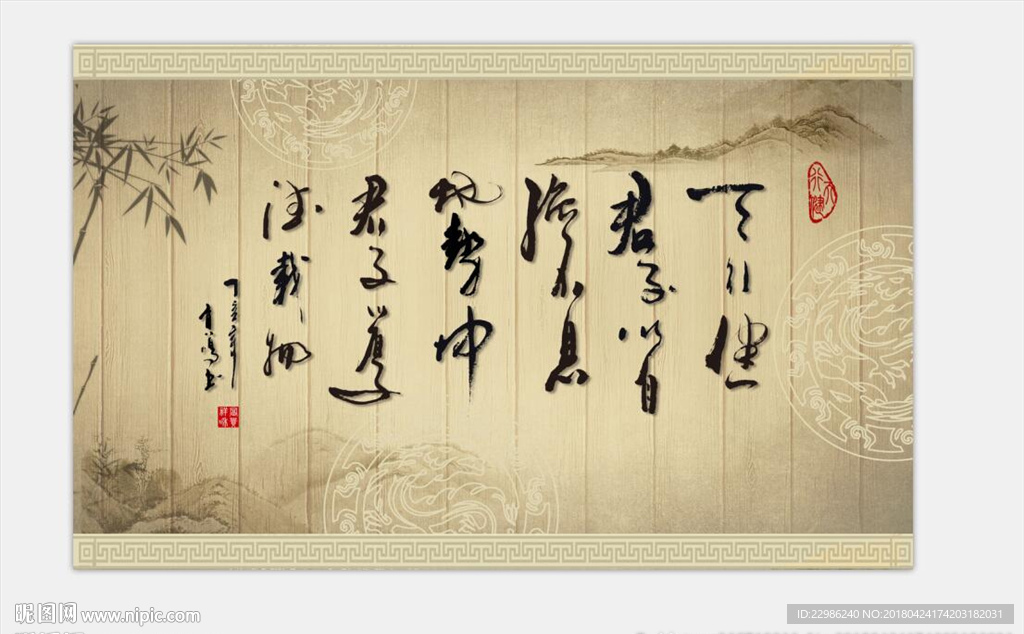 天行健
君子以自
强不息
地勢坤
君子以厚
德載物
昵图网 www.nipic.com
ID:22986240 NO:20180424174203182031